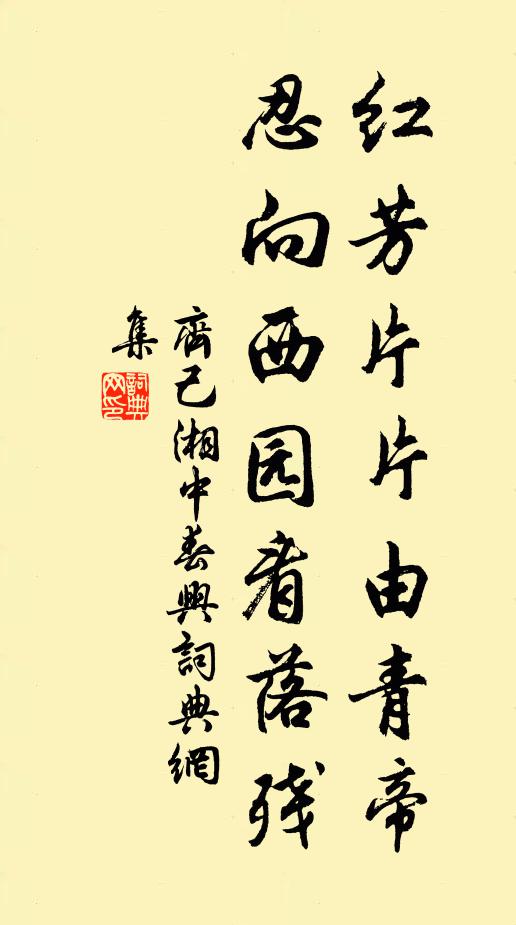 红芳片片由青帝
忍向西园看落残
齊己湘中春興詞典網
集
詞典
网印